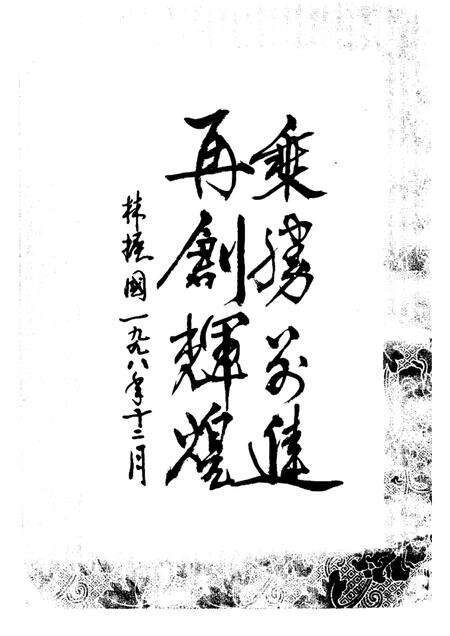 乘勝前進
再創輝煌
林振國一九九八年十二月